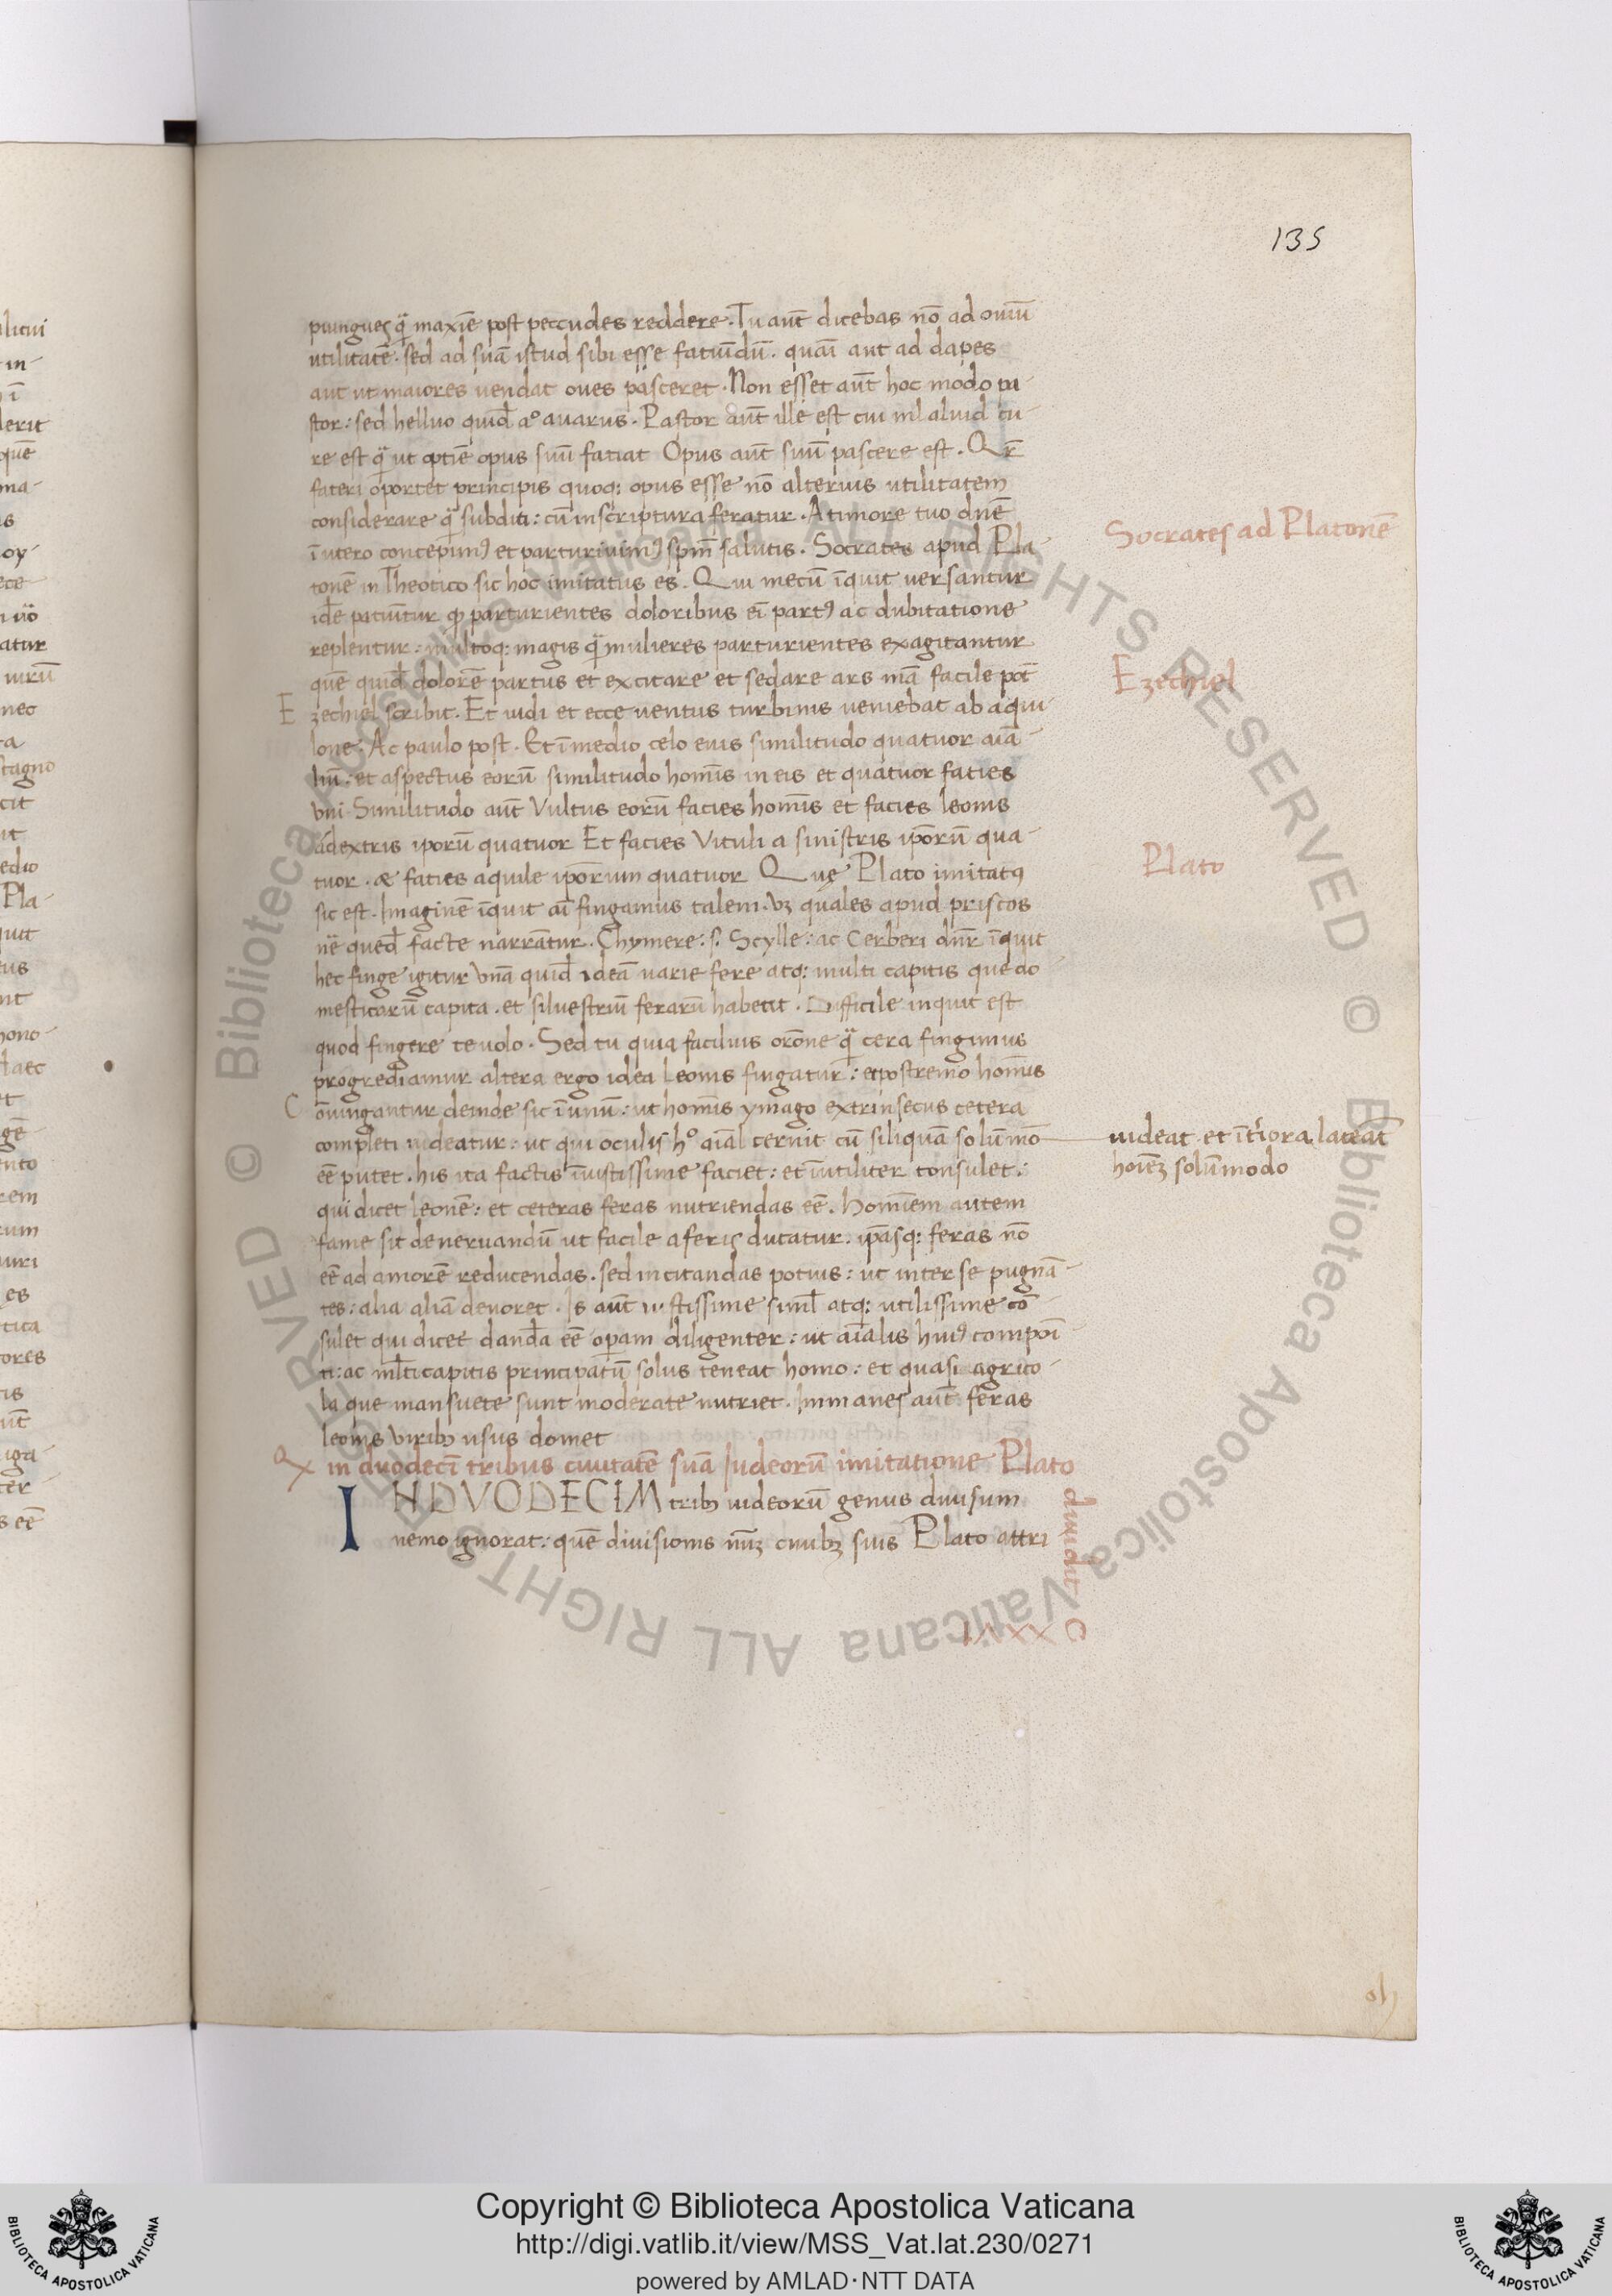 135
piungues q̃ maxie᷃ post peccudes reddere. Tu aut̃ dicebas nõ ad ouiũ
utilitatẽ. sed ad suã istud sibi esse faciũdũ. quãi aut ad dapes
aut ut maiores uendat oues pasceret. Non esset aut̃ hoc modo pa-
stor: sed helluo quid̃ aº auarus. Pastor aut̃ ille est cui nil aliud cu-
re est q̃ ut optiẽ opus suũ faciat Opus aut̃ suũ pascere est. Qr̃
fateri oportet principis quoq: opus esse nõ alterius utilitatem
considerare q̃ subditi: cũ inscriptura feratur. A timore tuo dñe
ĩ utero concepim9 et parturiuim9 spm̃ salutis. Socrates apud Pla-
Socrates ad Platonẽ
tonẽ in Theotico sic hoc imitatus es. Qui mecũ ĩquit uersantur
idẽ patiũtur qđ parturientes doloribus eĩ part9 ac dubitatione
replentur: multoq: magis q̃ mulieres parturientes exagitantur
quẽ quid̃ dolorẽ partus et excitare et sedare ars mã facile pot̃
Ezechiel
Ezechiel scribit. Et uidi et ecce uentus turbinis ueniebat ab aqui-
lone: Ac paulo post. Et ĩ medio celo eius similitudo quatuor aiã-
liũ: et aspectus eorũ similitudo homĩs in eis et quatuor facies
Vni Similitudo aut̃ Vultus eorũ facies homĩs et facies leonis
adextris iporũ quatuor Et facies Vituli a sinistris ip̃orũ qua-
tuor. & facies aquile ip̃orum quatuor Quę Plato imitat9
Plato
sic est. Imaginẽ ĩquit aĩ fingamus talem. Vz quales apud priscos
nẽ qued̃ facte narrãtur. Chymere: s. Scylle: ac Cerberi dñr ĩquit
hec finge igitur Vnã quid̃ ideã uarie fere atq: multi capitis que do-
mesticarũ capita. et siluestriũ ferarũ habeat. Difficile inquit est
quod fingere te uolo. Sed tu quia facilius orõne q̃ cera fingimus
progrediamur altera ergo idea Leonis fingatur: et postremo homĩs
Cõniungantur deinde sic ĩ unũ: ut homĩs ymago extrinsecus cetera
completi uideatur: ut qui oculis hº aĩal cernit cũ siliquã solũ mõ
uideat et ĩtĩora lateat̃
hoiẽz solũmodo
eẽ putet. his ita factis ĩiustissime faciet: et ĩutiliter consulet:
qui dicet leonẽ: et ceteras feras nutriendas eẽ. Homĩem autem
fame sit deneruandũ ut facile a feris ducatur. ip̃asq: feras nõ
eẽ ad amorẽ reducendas. sed incitandas potius: ut inter se pugnã-
tes: alia aliã deuoret. Is aut̃ iustissime siml̃ atq: utilissime cõ-
sulet qui dicet danda eẽ operam diligenter: ut aĩalis hui9 compoĩ-
ti: ac ml̃ti capitis principatũ solus teneat homo: et quasi agrico-
la que mansuete sunt moderate nutriet. Immanes aut̃ feras
leonis Viribꝫ usus domet
in duodecĩ tribus ciuitatẽ suã Iudeorũ imitatione Plato
diuidit
C XXVI
IN DVODECIM tribꝫ iudeorũ genus diuisum
nemo ignorat: quẽ diuisionis nũꝫ ciuibꝫ suis Plato attri
Copyright © Biblioteca Apostolica Vaticana
http://digi.vatlib.it/view/MSS_Vat.lat.230/0271
powered by AMLAD·NTT DATA